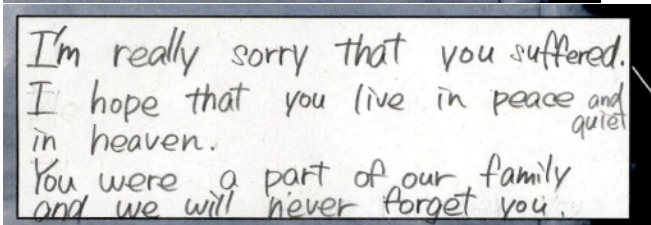 I'm really sorry that you suffered.
I hope that you live in peace and
quiet
in heaven.
You were a part of our family
and we will never forget you.